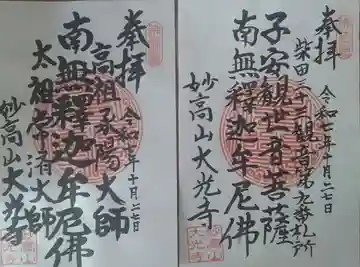 奉拝
令和七年十月二七日
高祖承陽大師
南無釋迦牟尼佛
太祖常済大師
妙高山大光寺
奉拝
柴田三十三観音第九番札所
令和七年十月二七日
子安観世音菩薩
南無釋迦牟尼佛
妙高山大光寺